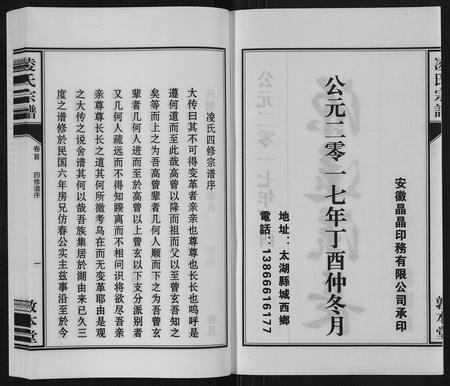 凌氏宗譜
公元二零一七年丁酉仲冬月
安徽晶晶印務有限公司承印
地址：太湖縣城西鄉
電話：13866616177
敦本堂
凌氏宗譜
卷首　四修譜序
一
敦本堂
凌氏四修宗譜序
大传曰其不可得变革者亲亲也尊尊也长长也呜呼是
遵何道而至此哉高曾以降而祖而父以至曾玄吾知之
矣等而上之为吾高曾辈者几何人顺而下之为吾曾玄
辈者几何人进而至於高曾以上曾玄以下支分派别者
又几何人疏远而不得知暌离而不相问识将欲尽吾亲
亲尊尊长长之道其何所徵考乌在而无变革耶由是观
之大传之说舍谱其何以哉吾族集居於湖由来已久三
度之谱修於民国六年房兄仿春公实主兹事沿至於今